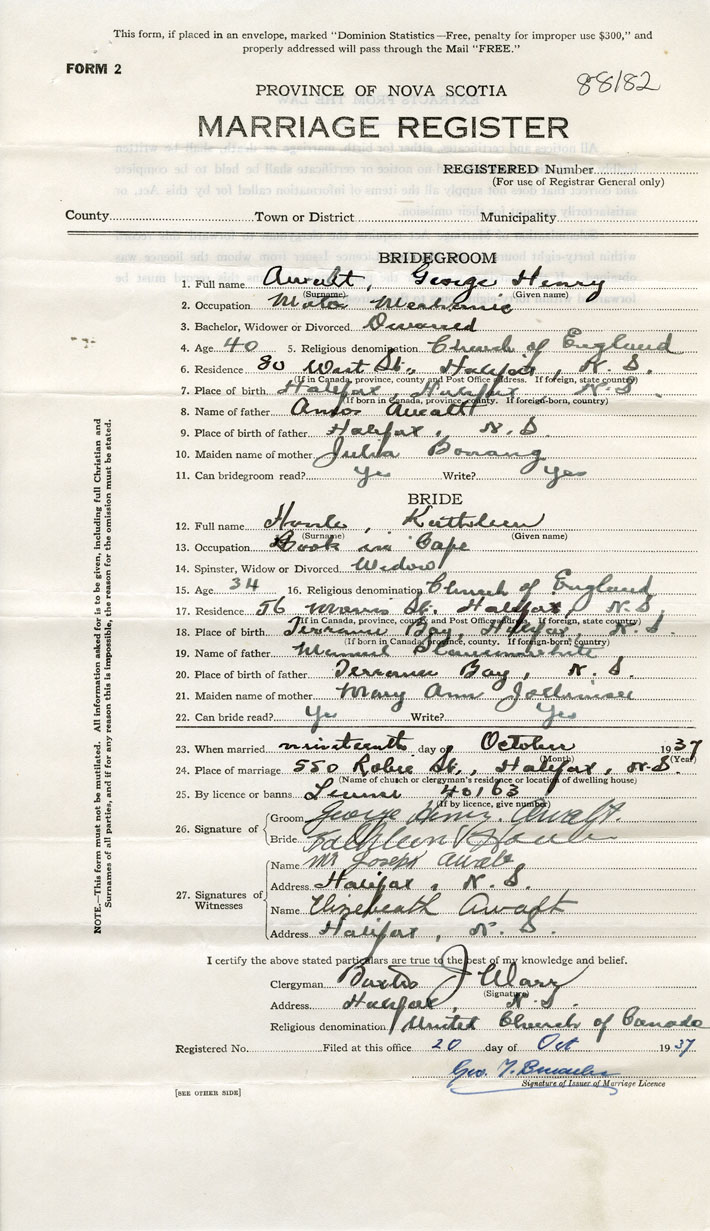 This form, if placed in an envelope, marked "Dominion Statistics—Free, penalty for improper use $300," and
properly addressed will pass through the Mail "FREE."
FORM 2
88/82
PROVINCE OF NOVA SCOTIA
MARRIAGE REGISTER
REGISTERED Number
(For use of Registrar General only)
County Town or District Municipality
BRIDEGROOM
1. Full name Awalt, George Henry
(Surname) (Given name)
2. Occupation Motor Mechanic
3. Bachelor, Widower or Divorced Divorced
4. Age 40 5. Religious denomination Church of England
6. Residence 80 West St., Halifax, N. S.
(If in Canada, province, county and Post Office address. If foreign, state country)
7. Place of birth Halifax, Halifax, N. S.
(If born in Canada, province, county. If foreign-born, country)
8. Name of father Amos Awalt
9. Place of birth of father Halifax, N. S.
10. Maiden name of mother Julia
11. Can bridegroom read? Yes Write? Yes
BRIDE
12. Full name Kathleen
(Surname) (Given name)
13. Occupation Cook in Cafe
14. Spinster, Widow or Divorced Widow
15. Age 34 16. Religious denomination Church of England
17. Residence 56 Morris St. Halifax, N. S.
(If in Canada, province, county and Post Office address. If foreign, state country)
18. Place of birth Terrance Bay, Halifax, N. S.
(If born in Canada, province, county. If foreign-born, country)
19. Name of father
20. Place of birth of father Terrance Bay, N. S.
21. Maiden name of mother Mary Ann
22. Can bride read? Yes Write? Yes
23. When married nineteenth day of October 1937
(Month) (Year)
24. Place of marriage 550 Robie St., Halifax, N. S.
(Name of church or clergyman's residence or location of dwelling house)
25. By licence or banns License 40163
(If by licence, give number)
26. Signature of
Groom George Henry Awalt.
Bride Kathleen
27. Signatures of
Witnesses
Name Mr Joseph Awalt
Address Halifax, N. S.
Name Elizebeath Awalt
Address Halifax, N. S.
I certify the above stated particulars are true to the best of my knowledge and belief.
Clergyman J
(Signature)
Address Halifax, N. S.
Religious denomination United Church of Canada
Registered No. Filed at this office 20 day of Oct 1937
Geo.
Signature of Issuer of Marriage Licence
[SEE OTHER SIDE]
NOTE.—This form must not be mutilated. All information asked for is to be given, including full Christian and
Surnames of all parties, and if for any reason this is impossible, the reason for the omission must be stated.